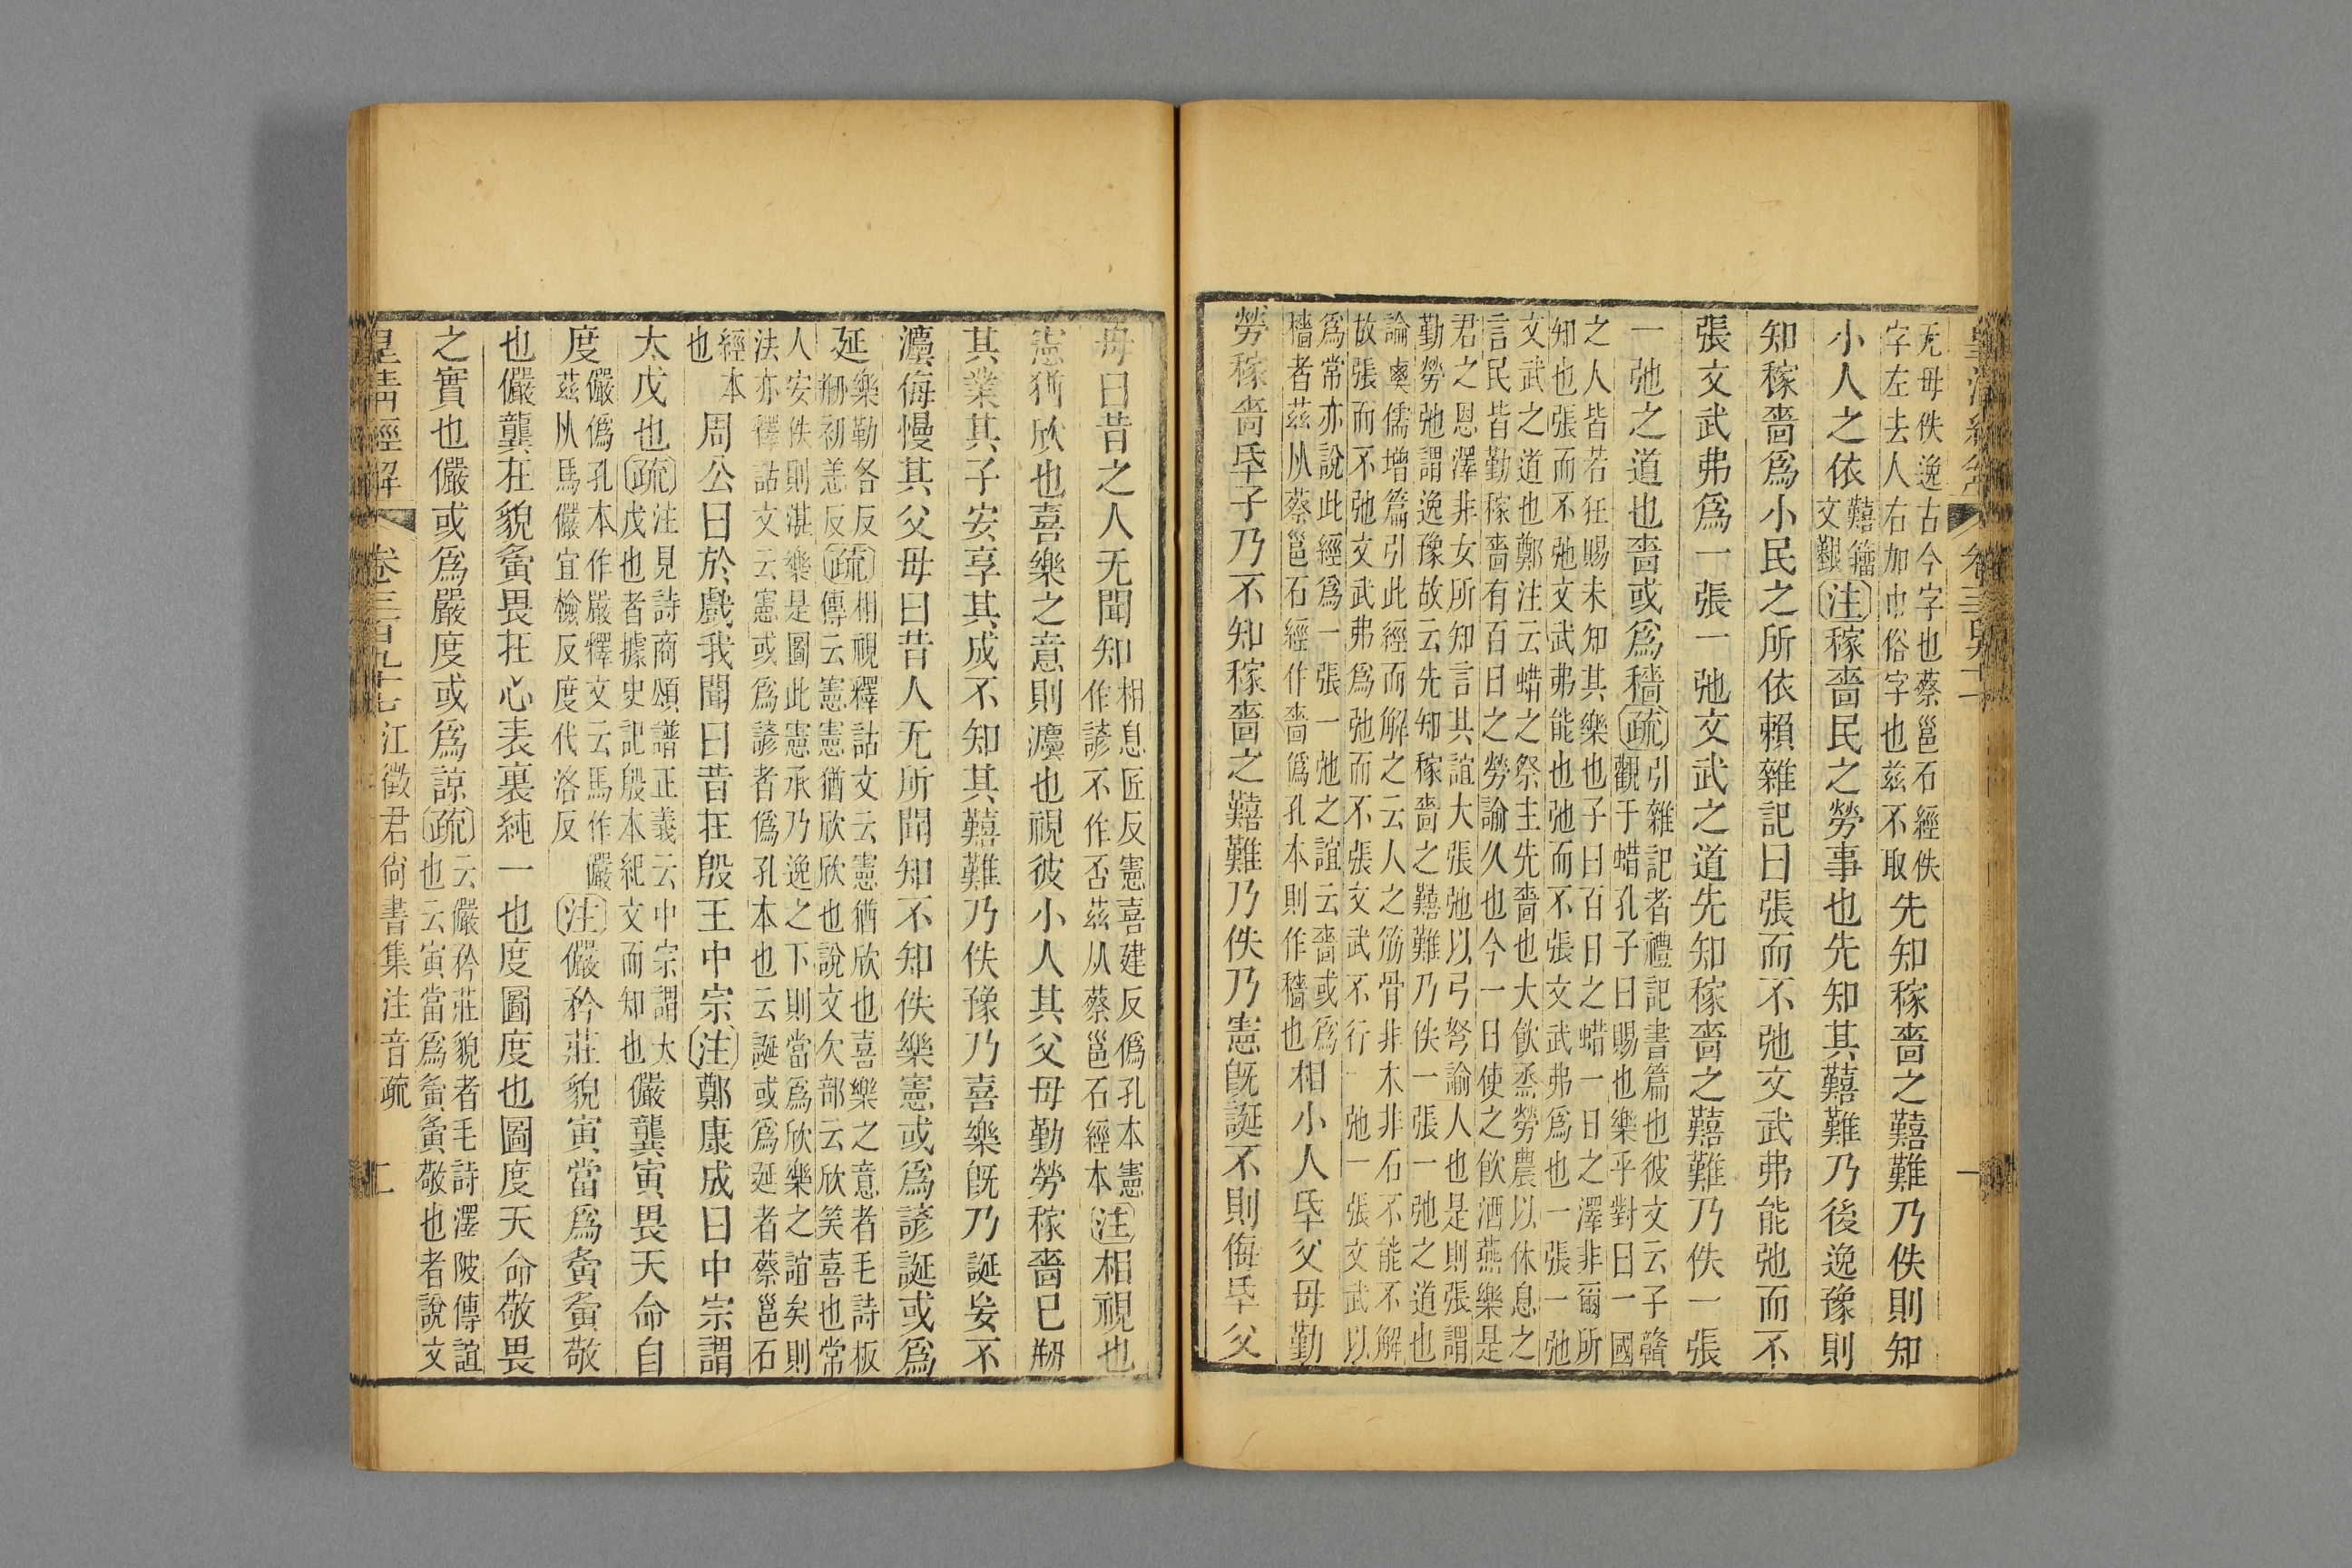 无毋佚逸古今字也蔡邕石經佚
字左去人右加巾俗字也兹不取
先知稼嗇之囏難乃佚則知
小人之依
囏籒
文艱
注稼嗇民之勞事也先知其囏難乃後逸豫則
知稼嗇爲小民之所依賴雜記曰張而不弛文武弗能弛而不
張文武弗爲一張一弛文武之道先知稼嗇之囏難乃佚一張
一弛之道也嗇或爲穡疏
引雜記者禮記書篇也彼文云子贛
觀于蜡孔子曰賜也樂乎對曰一國
之人皆若狂賜未知其樂也子曰百日之蜡一日之澤非爾所
知也張而不弛文武弗能也弛而不張文武弗爲也一張一弛
文武之道也鄭注云蜡之祭主先嗇也大飮烝勞農以休息之
言民皆勤稼嗇有百日之勞諭久也今一日使之飮酒燕樂是
君之恩澤非女所知言其誼大張弛以弓弩諭人也是則張謂
勤勞弛謂逸豫故云先知稼嗇之囏難乃佚一張一弛之道也
論衡儒增篇引此經而解之云人之筋骨非木非石不能不解
故張而不弛文武弗爲弛而不張文武不行一弛一張文武以
爲常亦說此經爲一張一弛之誼云嗇或爲
穡者兹从蔡邕石經作嗇僞孔本則作穡也
相小人氒父母勤
勞稼嗇氒子乃不知稼嗇之囏難乃佚乃憲旣誕不則侮氒父
母曰昔之人无聞知
相息匠反憲喜建反僞孔本憲
作諺不作否兹从蔡邕石經本
注相視也
憲猶欣也喜樂之意則灋也視彼小人其父母勤勞稼嗇已刱
其業其子安享其成不知其囏難乃佚豫乃喜樂旣乃誕妄不
灋侮慢其父母曰昔人无所聞知不知佚樂憲或爲諺誕或爲
延
樂勒各反
刱初恙反
疏
相視釋詁文云憲猶欣也喜樂之意者毛詩板
傳云憲憲猶欣欣也說文欠部云欣笑喜也常
人安佚則湛樂是圖此憲承乃逸之下則當爲欣樂之誼矣則
法亦釋詁文云憲或爲諺者僞孔本也云誕或爲延者蔡邕石
經本
也
周公曰於戲我聞曰昔在殷王中宗注鄭康成曰中宗謂
太戊也疏
注見詩商頌譜正義云中宗謂大
戊也者據史記殷本紀文而知也
儼龔寅畏天命自
度
儼僞孔本作嚴釋文云馬作儼
兹从馬儼宜檢反度代洛反
注儼矜莊貌寅當爲夤夤敬
也儼龔在貌夤畏在心表裏純一也度圖度也圖度天命敬畏
之實也儼或爲嚴度或爲諒疏
云儼矜莊貌者毛詩澤陂傳誼
也云寅當爲夤夤敬也者說文
皇清經解 卷三百九十七 江徵君尙書集注音疏 二